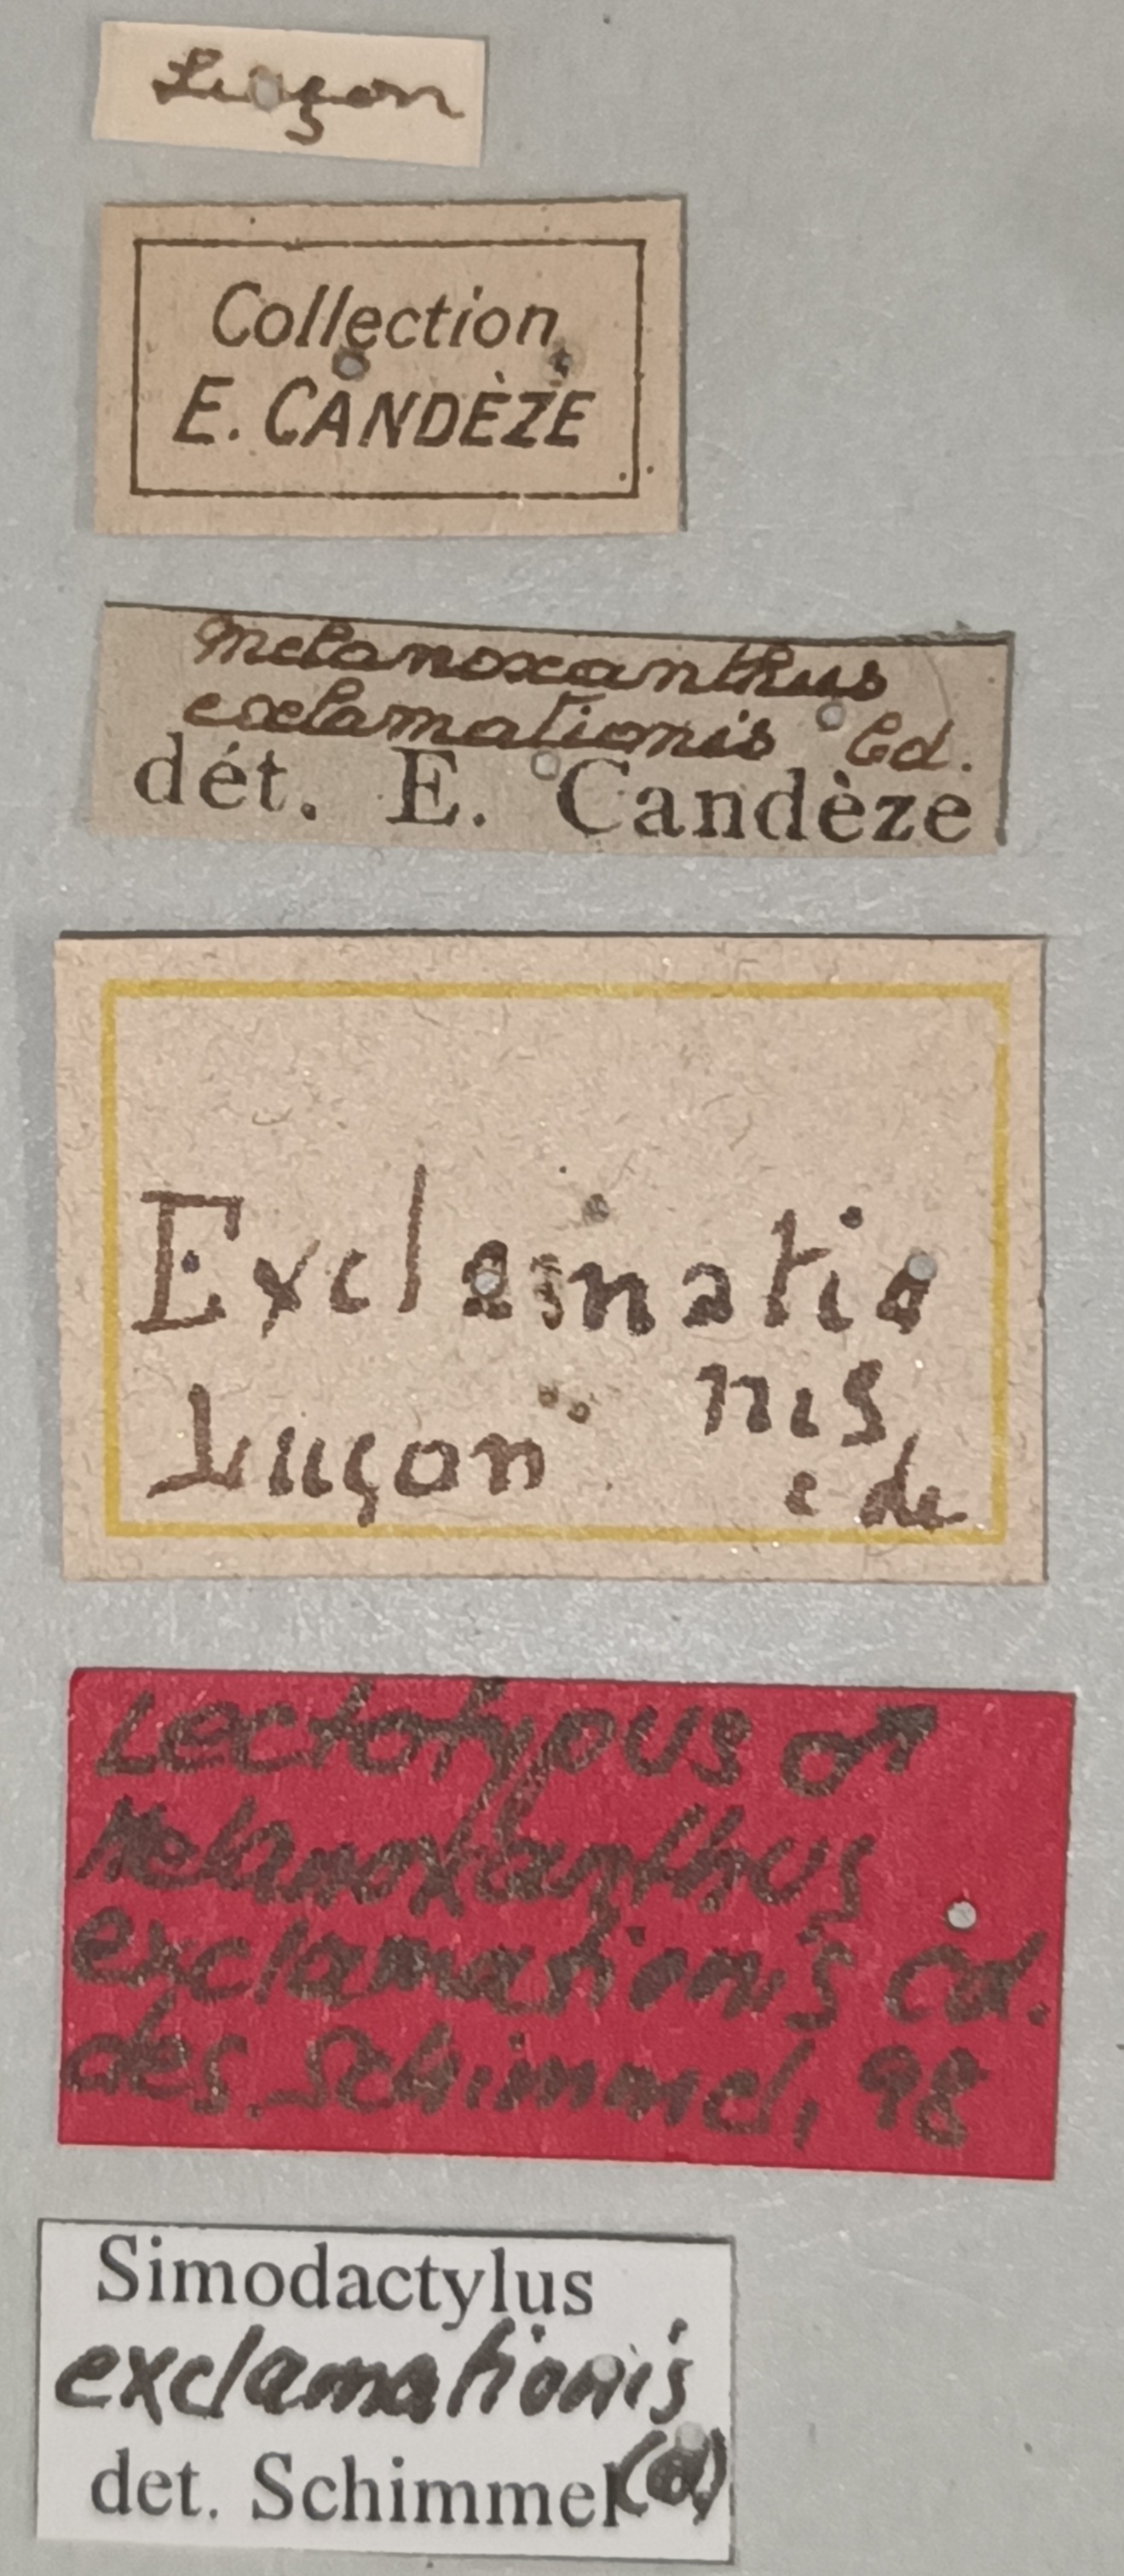 Luçon
Collection
E. CANDÈZE
Melanoxanthus
exclamationis Cd.
dét. E. Candèze
Exclamatio
nis
Luçon
cde
Lectotypus ♂
Melanoxanthus
exclamationis Cd.
des. Schimmel, 98
Simodactylus
exclamationis
det. Schimmel (Cd)